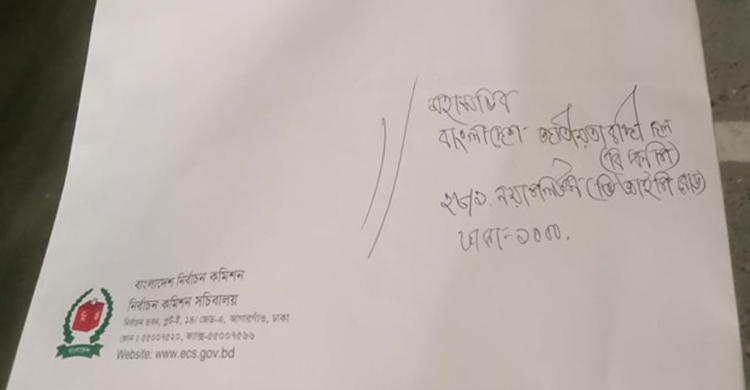 মহাসচিব
বাংলাদেশ জাতীয়তাবাদী দল
(বি এন পি)
২৮/১, নয়াপল্টন (ভি আই পি রোড)
ঢাকা-১০০০.
বাংলাদেশ নির্বাচন কমিশন
নির্বাচন কমিশন সচিবালয়
নির্বাচন ভবন, প্লট-ই, ১৪/ জেড-এ, আগারগাঁও, ঢাকা
ফোন ঃ ৫৫০০৭৫২০, ফ্যাক্স-৫৫০০৭৫৬৬
Website: www.ecs.gov.bd
বাংলাদেশ